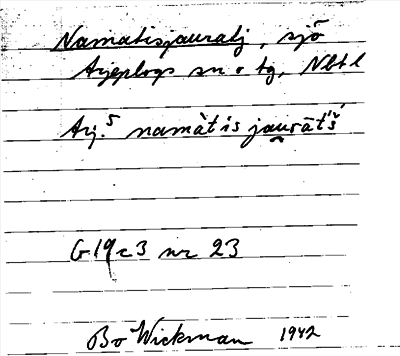 Namatisjauratj, sjö
Arjeplogs sn o tg, Nbtl
Arj.⁵ namàtis jau̯rāt́š́
G19c3 nr 23
Bo Wickman 1942